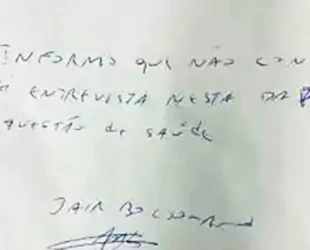 INFORMO QUE NÃO CON
ENTREVISTA NESTA DA
QUESTÃO de SAÚDE
JAIR BOLSONARO